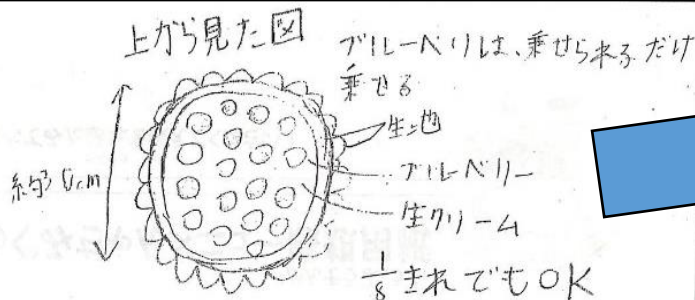 上から見た図
ブルーベリは、乗せられるだけ
乗せる
生地
ブルーベリー
約 cm
生クリーム
1/8きれでもOK